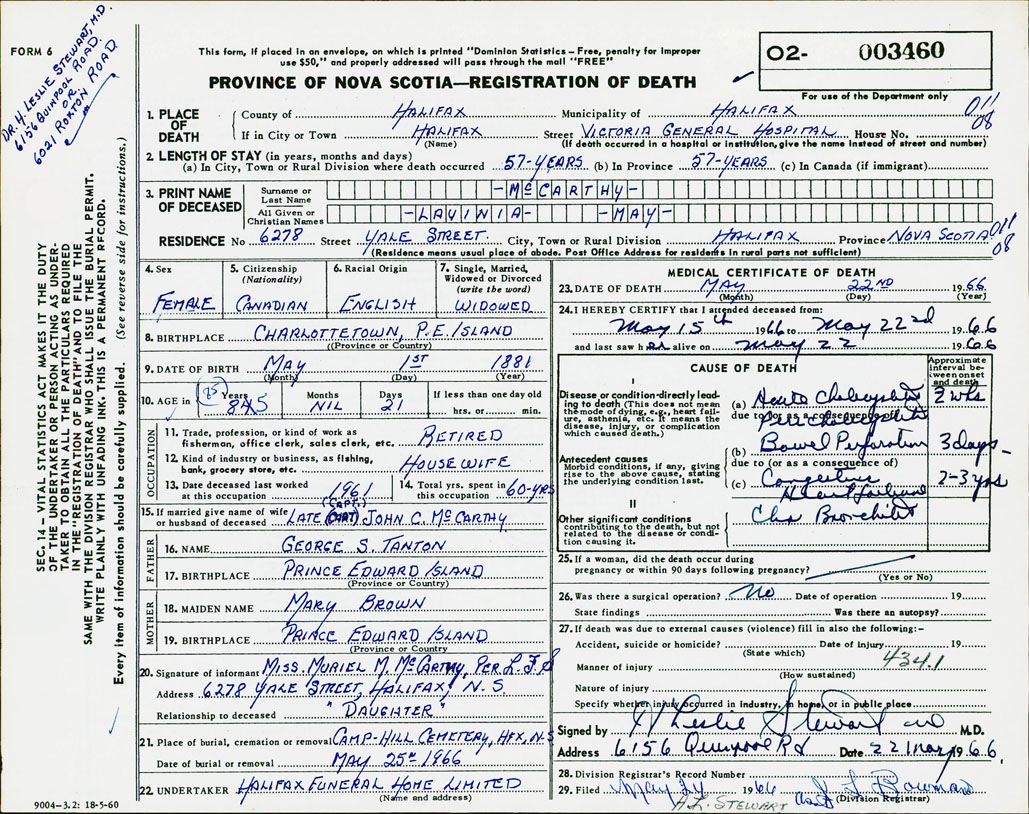 FORM 6
DR. H. LESLIE STEWART, M.D.
6156 QUINPOOL ROAD.
OR
6021 ROXTON ROAD
This form, if placed in an envelope, on which is printed "Dominion Statistics – Free, penalty for improper
use $50," and properly addressed will pass through the mail "FREE"
PROVINCE OF NOVA SCOTIA—REGISTRATION OF DEATH
02- 003460
For use of the Department only
011
08
1. PLACE OF DEATH
County of HALIFAX Municipality of HALIFAX
If in City or Town HALIFAX Street VICTORIA GENERAL HOSPITAL House No.
(Name) (If death occurred in a hospital or institution, give the name instead of street and number)
2. LENGTH OF STAY (in years, months and days)
(a) In City, Town or Rural Division where death occurred 57-YEARS (b) In Province 57-YEARS (c) In Canada (if immigrant)
3. PRINT NAME OF DECEASED
Surname or Last Name -McCARTHY-
All Given or Christian Names -LAVINIA- -MAY-
RESIDENCE No 6278 Street YALE STREET. City, Town or Rural Division HALIFAX Province NOVA SCOTIA 011
08
(Residence means usual place of abode. Post Office Address for residents in rural parts not sufficient)
4. Sex
FEMALE
5. Citizenship
(Nationality)
CANADIAN
6. Racial Origin
ENGLISH
7. Single, Married, Widowed or Divorced
(write the word)
WIDOWED
8. BIRTHPLACE CHARLOTTETOWN, P.E. ISLAND
(Province or Country)
9. DATE OF BIRTH MAY 1ST 1881
(Month) (Day) (Year)
10. AGE in
85
Years Months Days If less than one day old
NIL 21 hrs. or min.
OCCUPATION
11. Trade, profession, or kind of work as
fisherman, office clerk, sales clerk, etc. RETIRED
12. Kind of industry or business, as fishing,
bank, grocery store, etc. HOUSEWIFE
13. Date deceased last worked
at this occupation 1961
14. Total yrs. spent in
this occupation 60-YRS
15. If married give name of wife
or husband of deceased LATE (CAPT.) JOHN C. McCARTHY
FATHER
16. NAME GEORGE S. TANTON
17. BIRTHPLACE PRINCE EDWARD ISLAND
(Province or Country)
MOTHER
18. MAIDEN NAME MARY BROWN
19. BIRTHPLACE PRINCE EDWARD ISLAND
(Province or Country)
20. Signature of informant MISS. MURIEL M. McCARTHY, PER L.F.S
Address 6278 YALE STREET, HALIFAX, N.S.
Relationship to deceased "DAUGHTER"
21. Place of burial, cremation or removal CAMP-HILL CEMETERY, HFX, N-S
Date of burial or removal MAY 25TH 1966
22. UNDERTAKER HALIFAX FUNERAL HOME LIMITED
(Name and address)
9004-3.2: 18-5-60
MEDICAL CERTIFICATE OF DEATH
23. DATE OF DEATH MAY 22ND 1966
(Month) (Day) (Year)
24. I HEREBY CERTIFY that I attended deceased from:
May 15th 1966 to May 22nd 1966
and last saw her alive on May 22 1966
CAUSE OF DEATH
Approximate interval between onset and death
I
Disease or condition directly leading to death (This does not mean the mode of dying, e.g., heart failure, asthenia, etc. It means the disease, injury, or complication which caused death.)
(a) Acute Cholecystitis 2 wks
due to (or as a consequence of)
Pericholecystitis
(b) Bowel Perforation 3 days
Antecedent causes
Morbid conditions, if any, giving rise to the above cause, stating the underlying condition last.
due to (or as a consequence of)
(c) Congestive Heart Failure 2-3 yrs
II
Other significant conditions
contributing to the death, but not related to the disease or condition causing it.
Chr Bronchitis
25. If a woman, did the death occur during
pregnancy or within 90 days following pregnancy?
(Yes or No)
26. Was there a surgical operation? No Date of operation 19
State findings Was there an autopsy?
27. If death was due to external causes (violence) fill in also the following:–
Accident, suicide or homicide? Date of injury 19
(State which)
434.1
Manner of injury
(How sustained)
Nature of injury
Specify whether injury occurred in industry, in home, or in public place
Signed by H Leslie Stewart MD M.D.
Address 6156 Quinpool Rd Date 22 May 1966
28. Division Registrar's Record Number
29. Filed May 24 1966
(Division Registrar)
H.L. STEWART
SEC. 14 – VITAL STATISTICS ACT MAKES IT THE DUTY
OF THE UNDERTAKER OR PERSON ACTING AS UNDER-
TAKER TO OBTAIN ALL THE PARTICULARS REQUIRED
IN THE "REGISTRATION OF DEATH" AND TO FILE THE
SAME WITH THE DIVISION REGISTRAR WHO SHALL ISSUE THE BURIAL PERMIT.
WRITE PLAINLY WITH UNFADING INK. THIS IS A PERMANENT RECORD.
Every item of information should be carefully supplied. (See reverse side for instructions.)